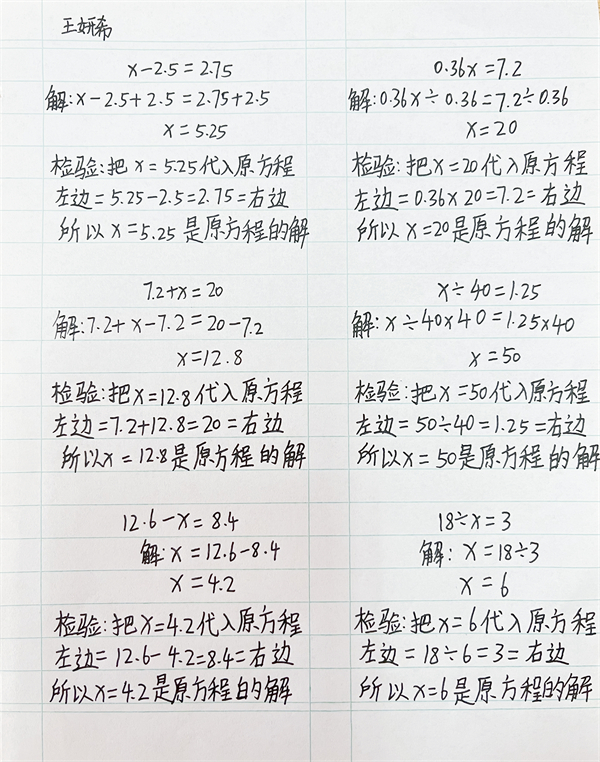 王妍希
x-2.5=2.75
解:x-2.5+2.5=2.75+2.5
x=5.25
检验:把x=5.25代入原方程
左边=5.25-2.5=2.75=右边
所以x=5.25是原方程的解
0.36x=7.2
解:0.36x÷0.36=7.2÷0.36
x=20
检验:把x=20代入原方程
左边=0.36×20=7.2=右边
所以x=20是原方程的解
7.2+x=20
解:7.2+x-7.2=20-7.2
x=12.8
检验:把x=12.8代入原方程
左边=7.2+12.8=20=右边
所以x=12.8是原方程的解
x÷40=1.25
解:x÷40×40=1.25×40
x=50
检验:把x=50代入原方程
左边=50÷40=1.25=右边
所以x=50是原方程的解
12.6-x=8.4
解:x=12.6-8.4
x=4.2
检验:把x=4.2代入原方程
左边=12.6-4.2=8.4=右边
所以x=4.2是原方程的解
18÷x=3
解:x=18÷3
x=6
检验:把x=6代入原方程
左边=18÷6=3=右边
所以x=6是原方程的解